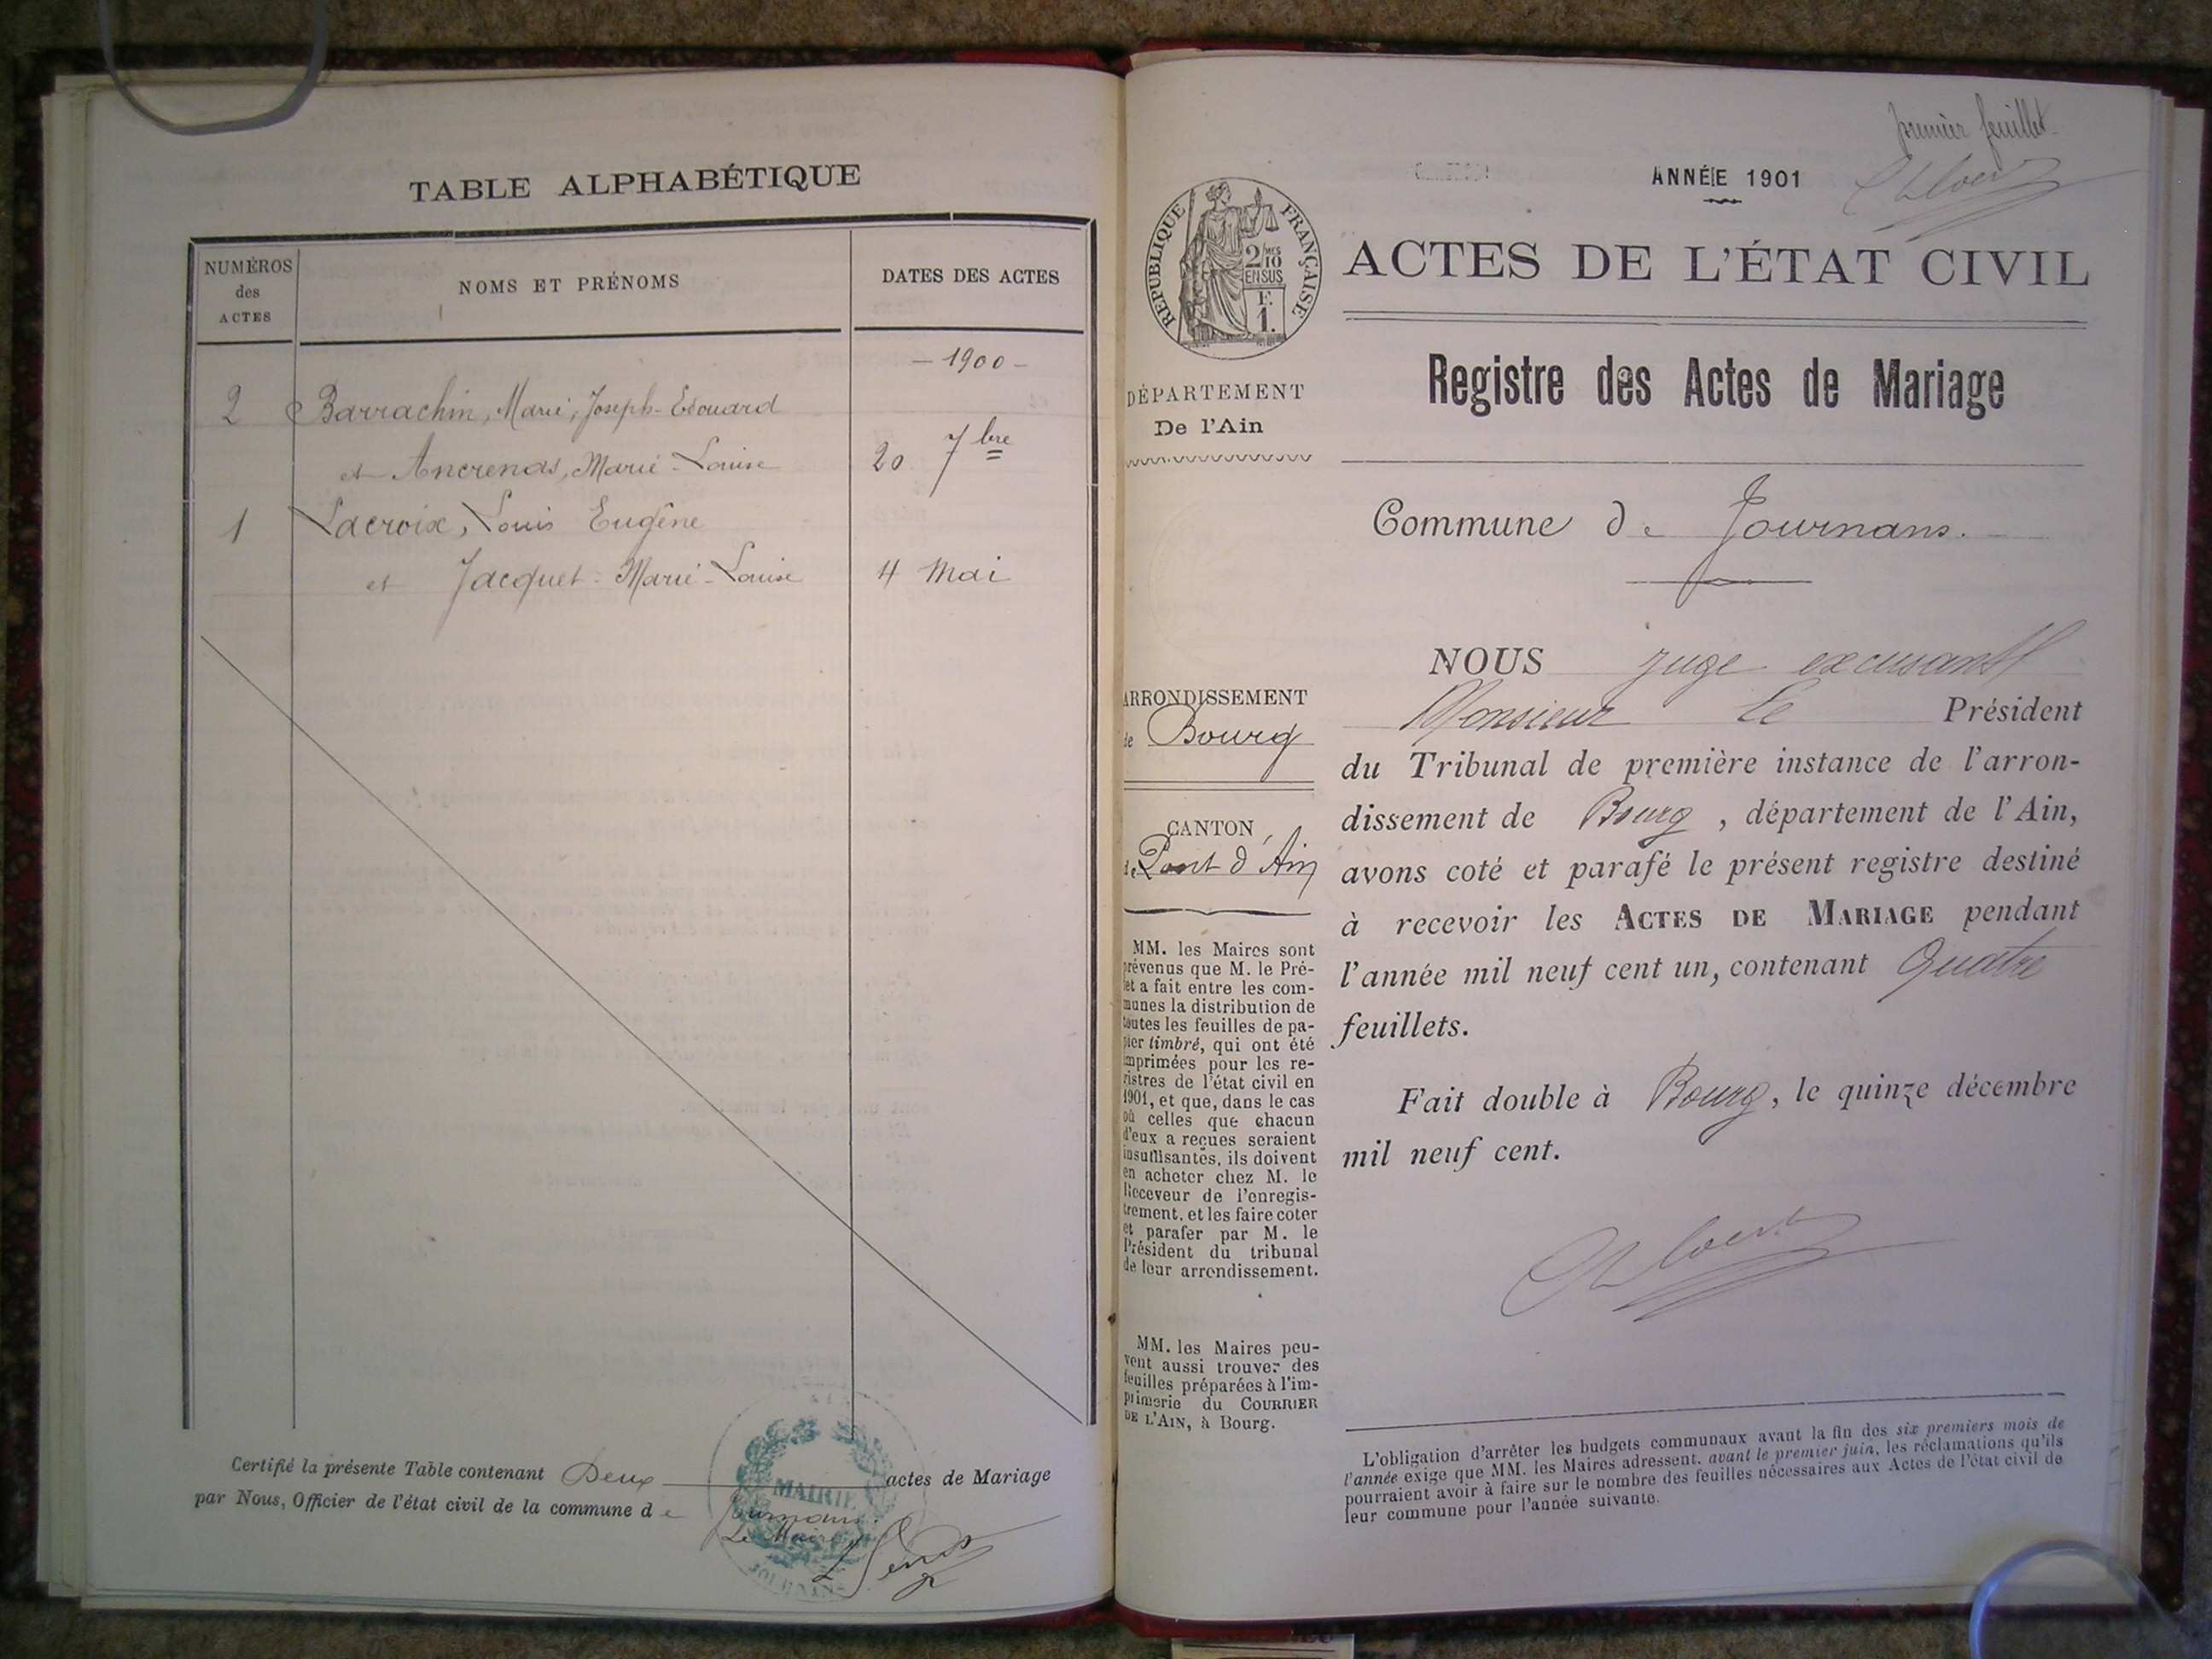 TABLE ALPHABÉTIQUE
NUMÉROS
des
ACTES
NOMS ET PRÉNOMS
DATES DES ACTES
- 1900 -
2 Barrachin, Marie, Joseph-Edouard
et Ancrenas, Marie-Louise 20 7bre
1 Lacroix, Louis Eugène
et Jacquet-Marie-Louise 4 Mai
Certifié la présente Table contenant Deux actes de Mariage
par Nous, Officier de l'état civil de la commune de Journans.
Le Maire
MAIRIE
JOURNANS
premier feuillet
ANNÉE 1901
RÉPUBLIQUE FRANÇAISE
2/10
EN SUS
F.
1.
ACTES DE L'ÉTAT CIVIL
DÉPARTEMENT
De l'Ain
Registre des Actes de Mariage
Commune de Journans.
ARRONDISSEMENT
de Bourg
CANTON
de Pont d'Ain
MM. les Maires sont
prévenus que M. le Pré-
fet a fait entre les com-
munes la distribution de
toutes les feuilles de pa-
pier timbré, qui ont été
imprimées pour les re-
gistres de l'état civil en
1901, et que, dans le cas
où celles que chacun
d'eux a reçues seraient
insuffisantes, ils doivent
en acheter chez M. le
Receveur de l'enregis-
trement, et les faire coter
et parafer par M. le
Président du tribunal
de leur arrondissement.
MM. les Maires peu-
vent aussi trouver des
feuilles préparées à l'im-
primerie du COURRIER
DE L'AIN, à Bourg.
NOUS juge excusant
Monsieur le Président
du Tribunal de première instance de l'arron-
dissement de Bourg, département de l'Ain,
avons coté et parafé le présent registre destiné
à recevoir les ACTES DE MARIAGE pendant
l'année mil neuf cent un, contenant Quatre
feuillets.
Fait double à Bourg, le quinze décembre
mil neuf cent.
L'obligation d'arrêter les budgets communaux avant la fin des six premiers mois de
l'année exige que MM. les Maires adressent, avant le premier juin, les réclamations qu'ils
pourraient avoir à faire sur le nombre des feuilles nécessaires aux Actes de l'état civil de
leur commune pour l'année suivante.